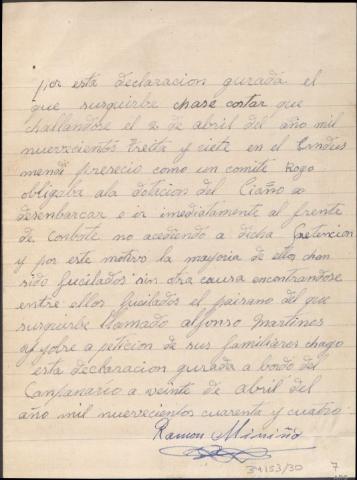 por esta declaracion gurada el
que surquirbe chase costar que
challandose el 2 de abril del año mil
nuerrecientos treite y ciete en el
mendi presecio como un comite Rogo
obligava ala doticion del Ciaño a
desenbarcar e ir imediatamente al frente
de Conbate no acediendo a dicha Pretencion
y por este motivo la mayoria de ellos chan
sido fucilados sin otra causa encontrandose
entre ellos fucilados el paisano del que
surquirbe llamado alfonso Martines
y sobre a peticion de sus familiares chago
esta declaracion gurada a bordo del
Campanario a veinte de abril del
año mil nuerrecientos cuarenta y cuatro
Ramon Miniño
34153/30 7